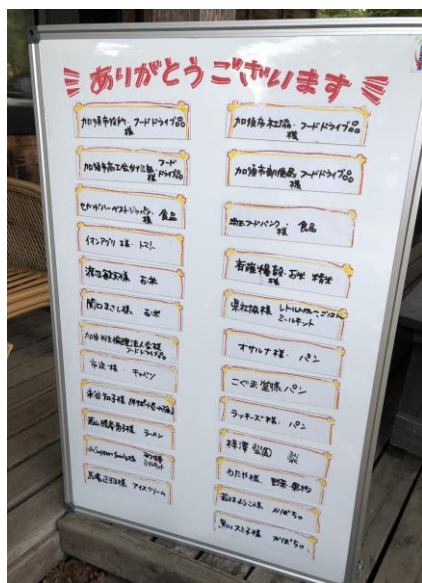 ありがとうございます
加須市役所・フードドライブ品
様
加須市商工会女性部 フード
様 ドライブ品
セカンドハーベストジャパン・食品
様
イオンアグリ様・トマト
様 お米
関口まさし様 お米
加須市倫理法人会様
フードドライブ品
様・キャベツ
様
様 ラーメン
様
様 アイスクリーム
加須市社協・フードドライブ品
様
加須市郵便局 フードドライブ品
様
埼玉フードバンク・食品
様
有座揚穀・お米 精米
様
県社協様 レトルトカレー、ごはん
ミールキット
オサルナ様・パン
こぐま堂様 パン
ラッキーズ様・パン
梨園 梨
わたや様 野菜・果物
ようこ様 かぼちゃ
スミ子様 かぼちゃ